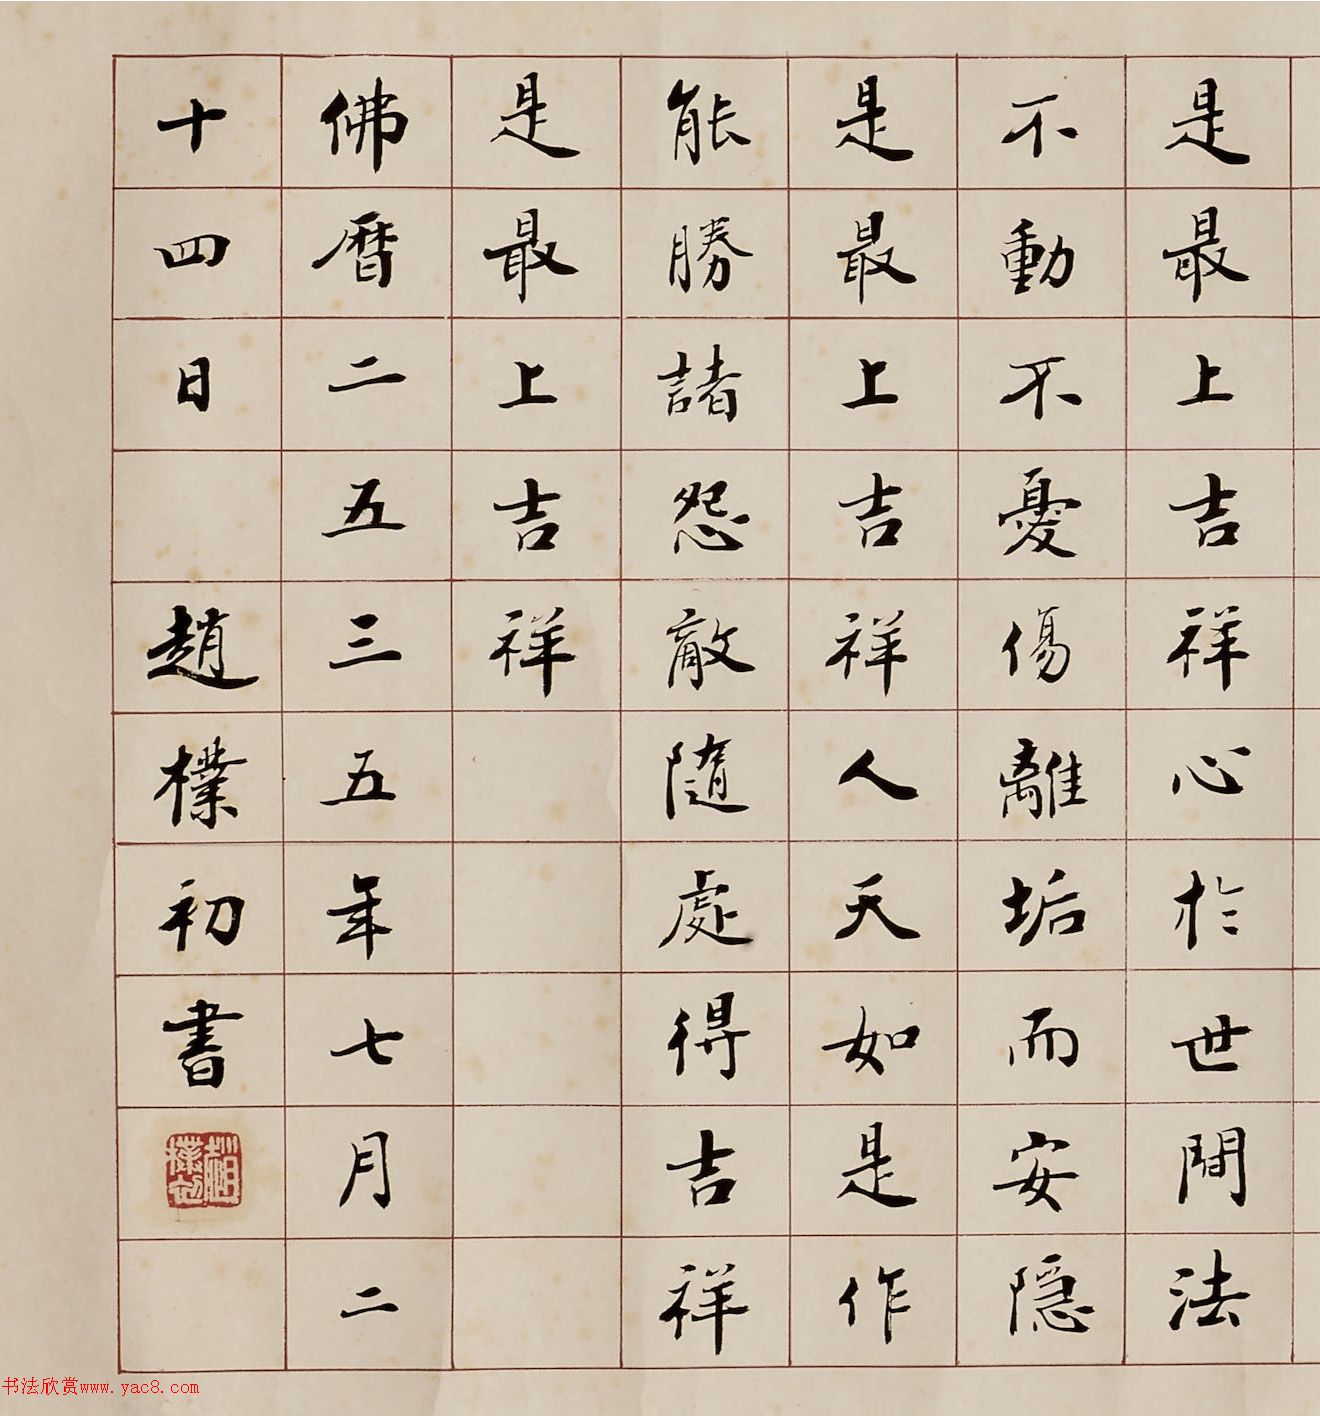 是最上吉祥心於世間法
不動不憂傷離垢而安隱
是最上吉祥人天如是作
能勝諸怨敵隨處得吉祥
是最上吉祥
佛曆二五三五年七月二
十四日 趙樸初書
趙樸初
书法欣赏www.yac8.com